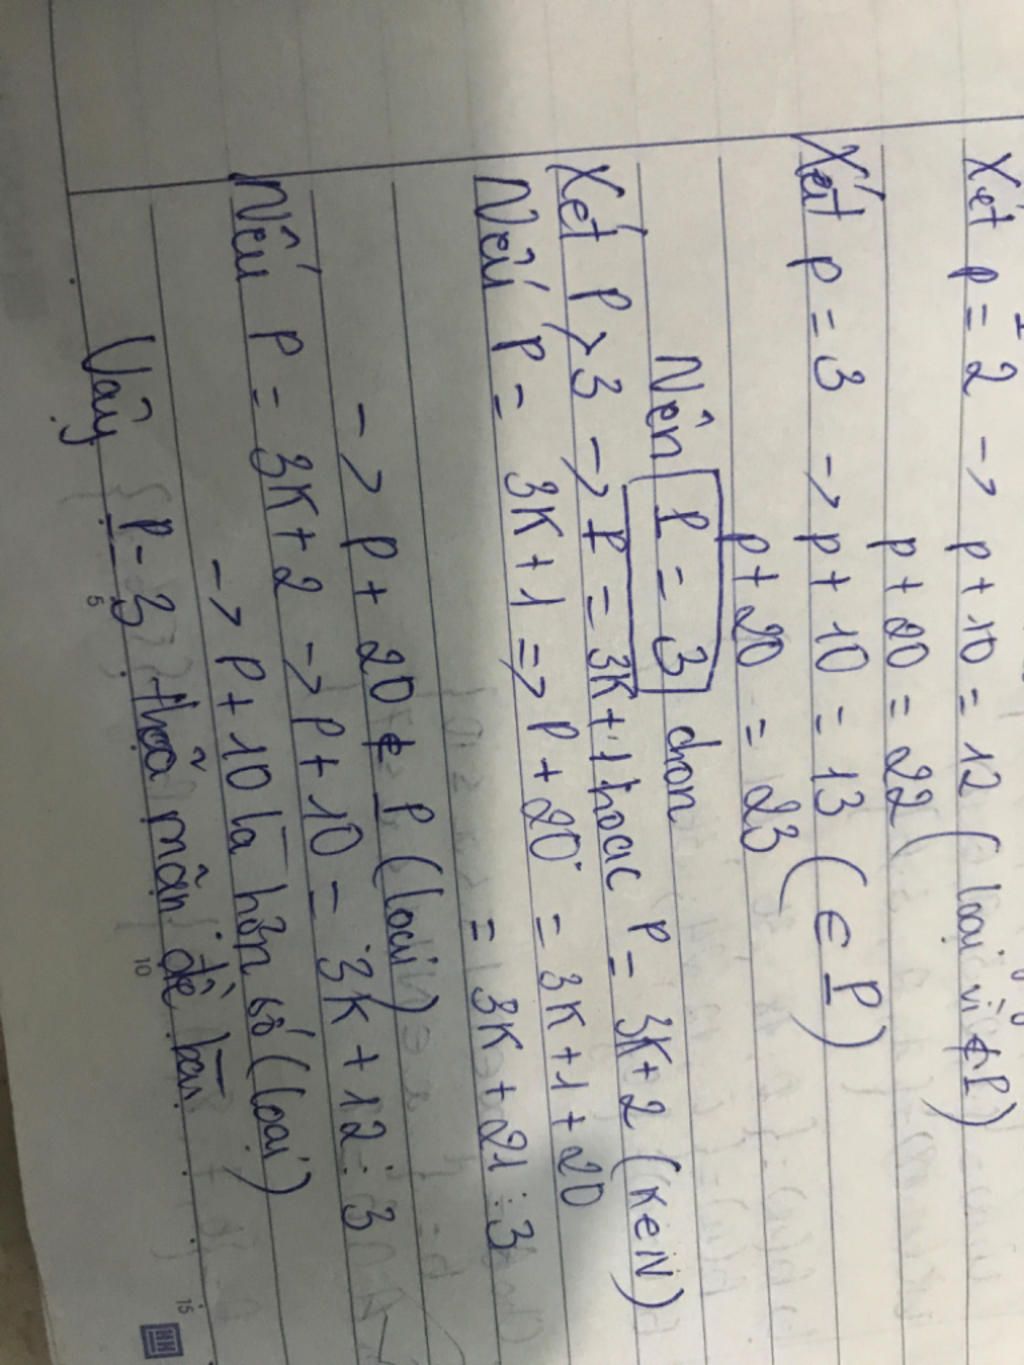 Xét p = 2 -> p + 10 = 12 ( loại vì ∉ P)
p + 20 = 22
Xét p = 3 -> p + 10 = 13 ( ∈ P)
p + 20 = 23
Nên P = 3 chon
Xét P > 3 -> P = 3K + 1 hoac P = 3K + 2 (K∈N)
Nếu P = 3K + 1 => P + 20 = 3K + 1 + 20
= 3K + 21 ⋮ 3
-> P + 20 ∉ P (loại)
Nếu P = 3K + 2 -> P + 10 = 3K + 12 ⋮ 3
-> P + 10 là hơn số (loại)
Vậy P = 3 thỏa mãn đề bài
5
10
15
HH